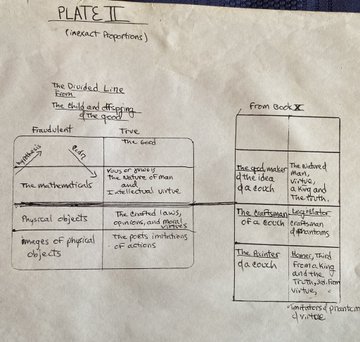 PLATE II
(inexact Proportions)
The Divided Line
From
The Child and offspring
of the good
Fraudulent
True
hypothesis
The Good
The mathematicals
The Nature of man
and
Intellectual virtue
Physical objects
The Crafted laws,
opinions, and moral
virtues
Images of physical
objects
The poets imitations
of actions
From Book X
The god, maker
of the idea
of a couch
The Nature of
man,
virtue,
a King and
The Truth.
The Craftsman
of a Couch
Legislator
Craftsman
of phantoms
The Painter
of a couch
Homer, Third
From a King
and the
Truth, 3rd. From
virtue,
imitators of phantoms
of virtue